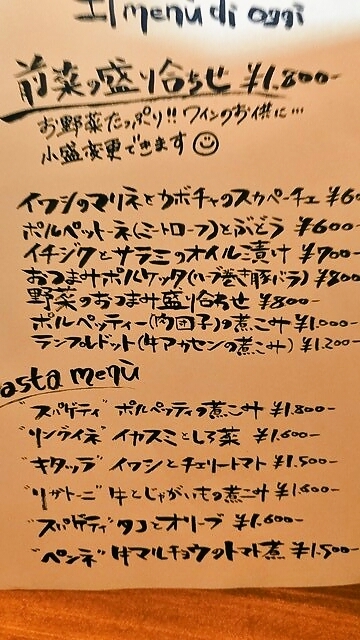 Il menù di oggi
前菜の盛り合わせ ¥1.800-
お野菜たっぷり!! ワインのお供に…
小盛変更できます
イワシのマリネとカボチャのスカペーチェ ¥6
ポルペットーネ(ミートローフ)とぶどう ¥600-
イチジクとサラミのオイル漬け ¥700-
おつまみポルケッタ(ハーブ巻き豚バラ) ¥800
野菜のおつまみ盛り合わせ ¥800-
ポルペッティー(肉団子)の煮こみ ¥1.000-
ランプルドット(牛アカセンの煮こみ) ¥1.200-
asta menù
"スパゲティ" ポルペッティの煮こみ ¥1.800-
"リングイネ" イカスミとしろ菜 ¥1.600-
"キタッラ" イワシとチェリートマト ¥1.500-
"リガトーニ" 牛とじゃがいもの煮こみ ¥1.600-
"スパゲティ" タコとオリーブ ¥1.600-
"ペンネ" 牛マルチョウのトマト煮 ¥1.500-